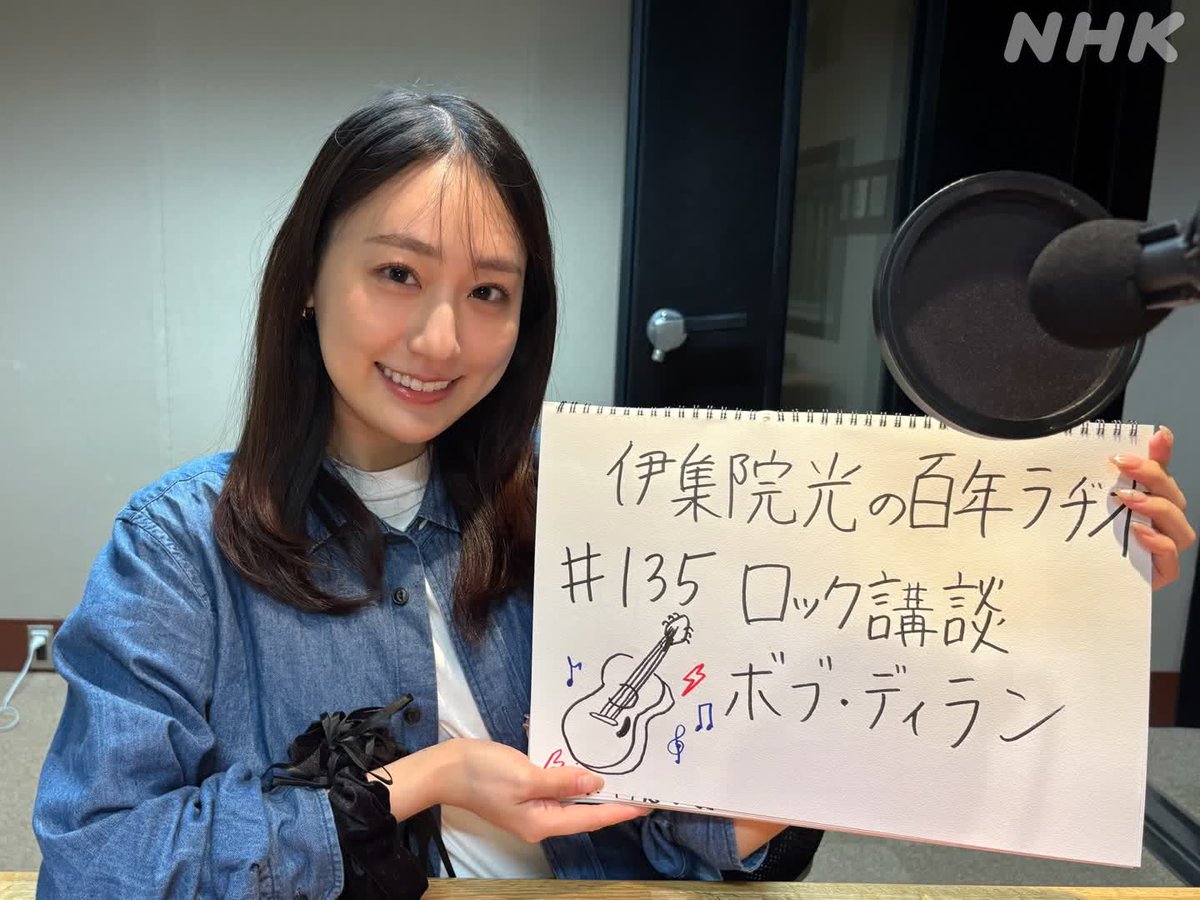 NHK
伊集院光の百年ラヂオ
#135 ロック講談
ボブ・ディラン